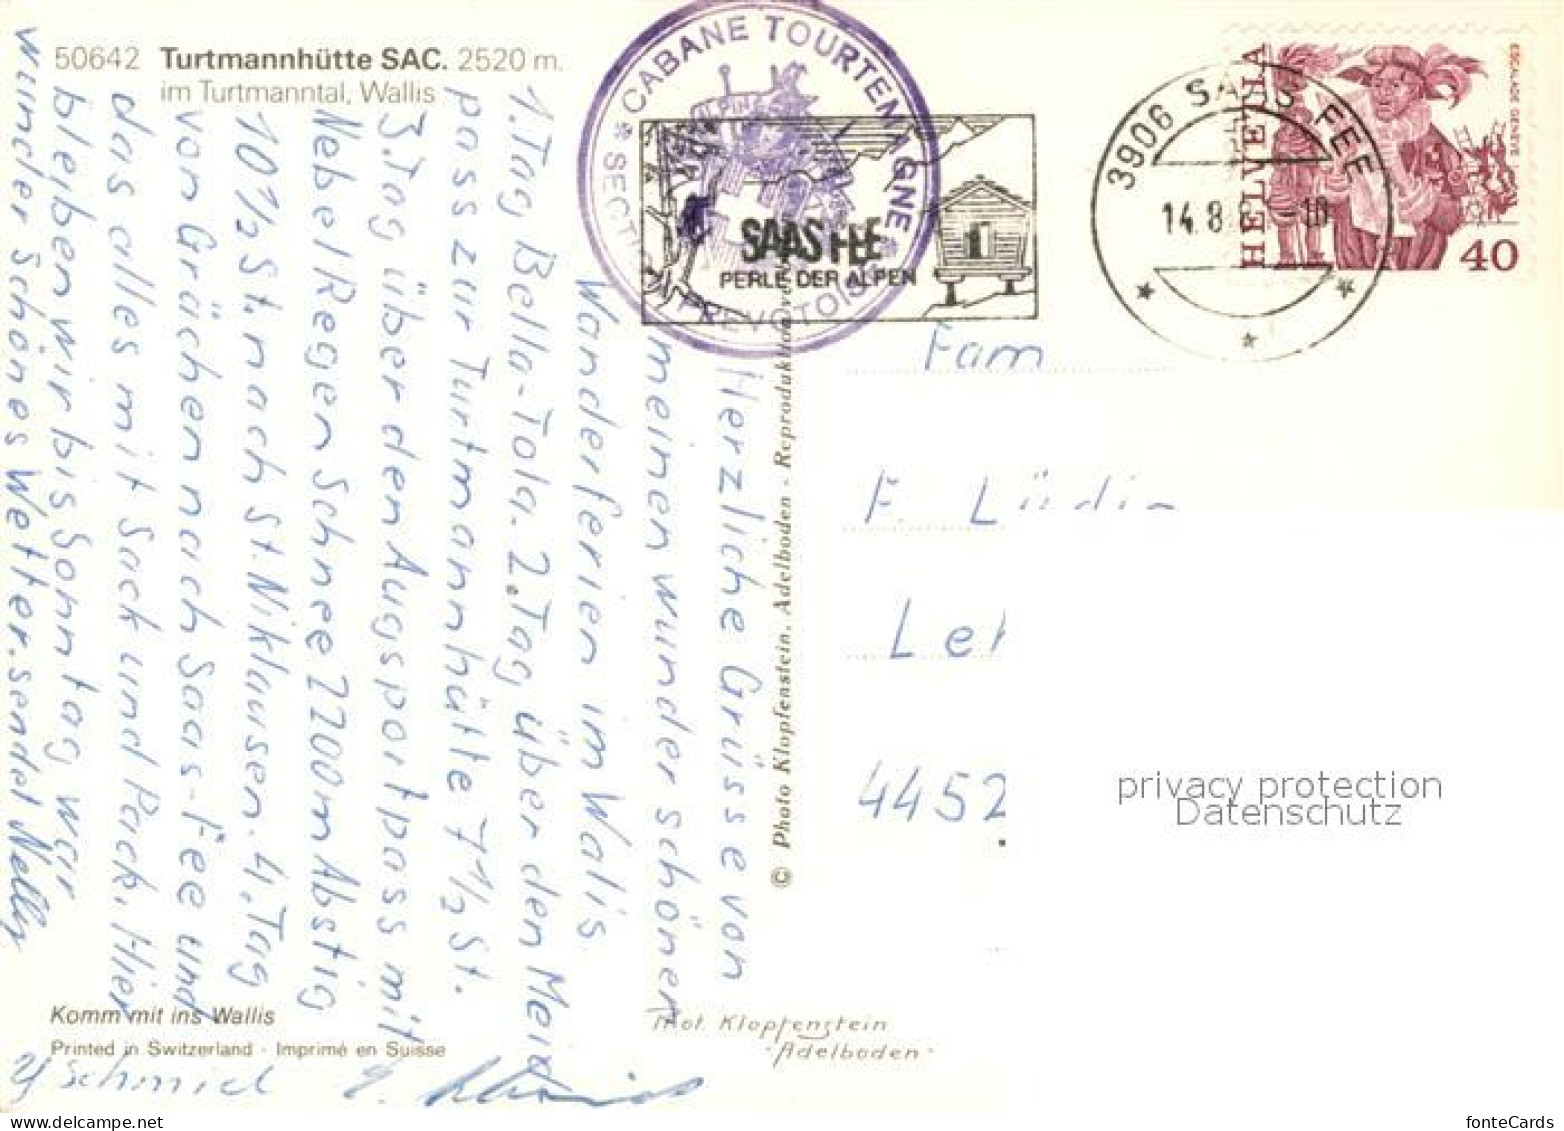 50642 Turtmannhütte SAC. 2520 m.
im Turtmanntal, Wallis
* CABANE TOURTEMAGNE *
PREVOTOISE
SAAS FEE
PERLE DER ALPEN
3906 SAAS-FEE
14.8
HELVETIA
ESCALADE GENÈVE
40
Herzliche Grüsse von
meinen wunder schönen
Wanderferien im Walis.
1. Tag Bella-Tola. 2. Tag über den Meid
pass zur Turtmannhütte 7½ St.
3. Tag über den Augsportpass mit
Nebel Regen Schnee 2200m Abstig
10½ St. nach St. Niklausen. 4. Tag
von Grächen nach Saas-Fee und
das alles mit Sack und Pack. Hier
bleiben wir bis Sonntag war
wunder schönes Wetter. sendet Nelly
Y Schmid
© Photo Klopfenstein, Adelboden - Reproduktion
Fam
F. Lüdi
4452
privacy protection
Datenschutz
Komm mit ins Wallis
Printed in Switzerland - Imprimé en Suisse
Phot. Klopfenstein
- Adelboden -
fonteCards